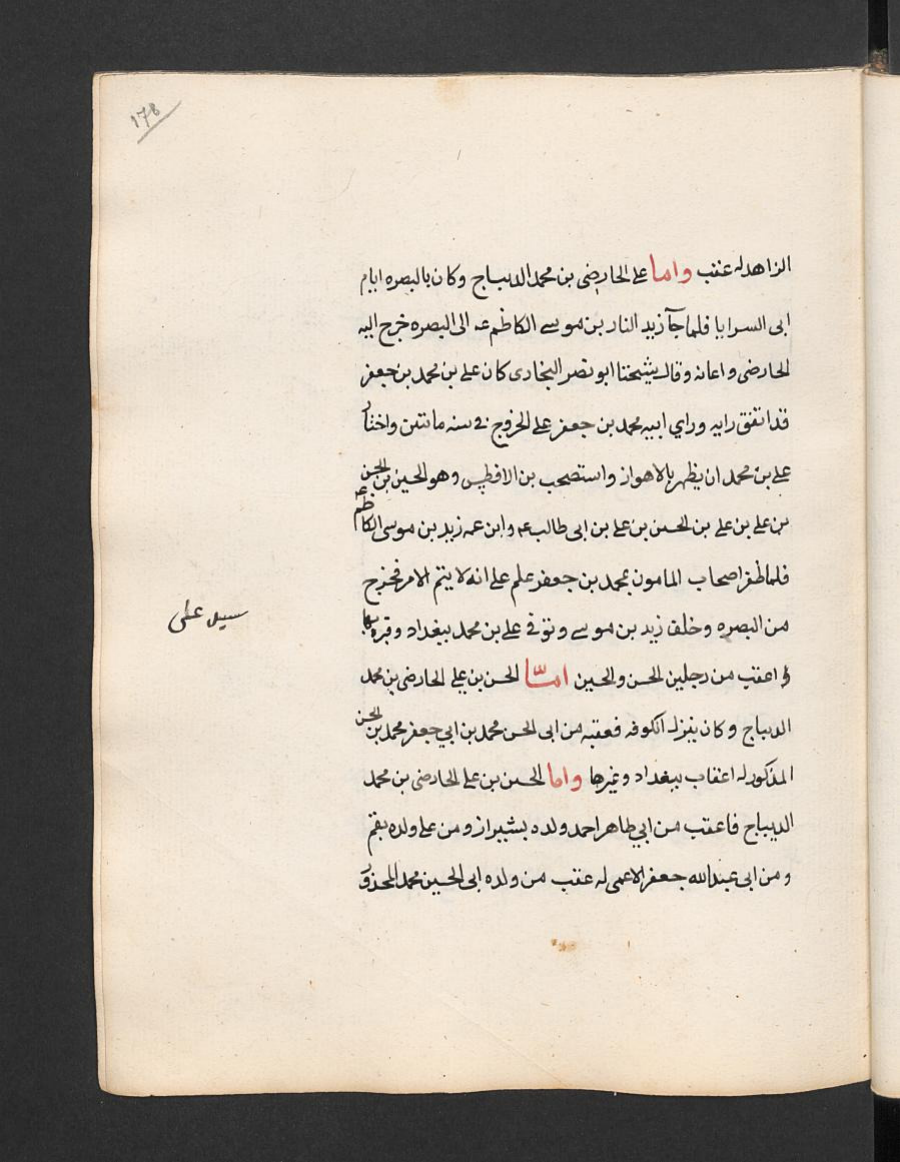 ١٧٥
الزاهد له عقب واما على الحارضى بن محمد الديباج وكان بالبصره ايام
ابى السرايا فلما جآ زيد النار بن موسى الكاظم عه الى البصره خرج اليه
الحارضى واعانه وقال شيخنا ابو نصر البخارى كان على بن محمد بن جعفر
قد اتفق رايه وراي ابيه محمد بن جعفر على الخروج فى سنه مائتين واختار
على بن محمد ان يظهر بالاهواز واستصحب بن الافطس وهو الحسين بن الحسن
بن على بن على بن الحسين بن على بن ابى طالب عه وابن عمه زيد بن موسى الكاظم عه
فلما ظفر اصحاب المامون بمحمد بن جعفر علم على انه لا يتم الامر فخرج
من البصره وخلف زيد بن موسى وتوفى على بن محمد ببغداد وقبره بها
و اعقب من رجلين الحسن والحسين امّا الحسن بن على الحارضى بن محمد
الديباج وكان ينزل الكوفه فعقبه من ابى الحسن محمد بن ابي جعفر محمد بن الحسن
المذكور له اعقاب ببغداد وغيرها واما الحسين بن على الحارضى بن محمد
الديباج فاعقب من ابي طاهر احمد ولده بشيراز ومن على ولده بقم
ومن ابى عبدالله جعفر الاعمى له عقب من ولده ابى الحسين محمد المحذور
سيد على